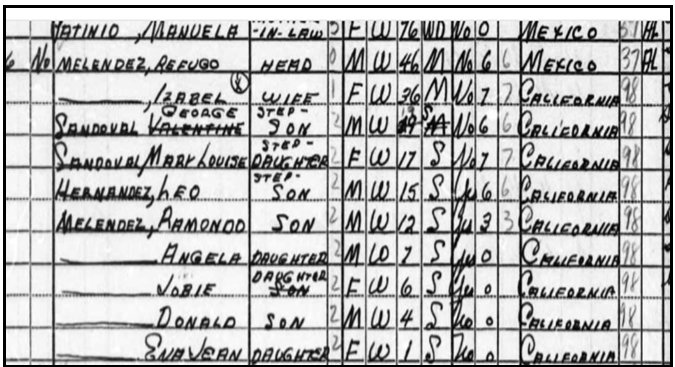 PATINIO, MANUELA MOTHER-IN-LAW 5 F W 76 WD No 0 MEXICO 37 AL
No MELENDEZ, REFUGO HEAD 0 M W 46 M No 6 6 MEXICO 37 AL
———, IZABEL WIFE 1 F W 36 M No 7 7 CALIFORNIA 98
SANDOVAL GEORGE VALENTINE STEP-SON 2 M W 19 S No 6 6 CALIFORNIA 98
SANDOVAL, MARY LOUISE STEP-DAUGHTER 2 F W 17 S No 7 7 CALIFORNIA 98
HERNANDEZ, LEO STEP-SON 2 M W 15 S Yes 6 6 CALIFORNIA 98
MELENDEZ, RAMONDO SON 2 M W 12 S Yes 3 3 CALIFORNIA 98
——— ANGELA DAUGHTER 2 M W 7 S Yes 0 CALIFORNIA 98
——— JOBIE DAUGHTER SON 2 F W 6 S Yes 0 CALIFORNIA 98
——— DONALD SON 2 M W 4 S No 0 CALIFORNIA 98
——— ENA JEAN DAUGHTER 2 F W 1 S No 0 CALIFORNIA 98